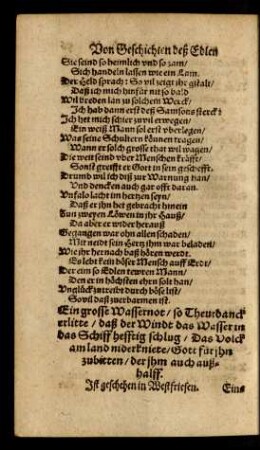 Von Geschichten deß Edlen
Sie seind so heimlich vnd so zam/
Sich handeln lassen wie ein Lam.
Der Held sprach: So vil zeigt ihr gstalt/
Daß ich mich hinfür nit so bald
Wil breden lan zu solchem Werck/
Ich hab dann erst deß Samsons sterck:
Ich het mich schier zu vil erwegen/
Ein weiß Mann sol erst vberlegen/
Was seine Schultern können tragen/
Wann er solch grosse that wil wagen/
Die weit seind vber Menschen kräfft/
Sonst greifft er Gott in sein geschefft.
Drumb wil ich diß zur Warnung han/
Vnd dencken auch gar offt daran.
Vnfalo lacht im hertzen seyn/
Daß er ihn het gebracht hinein
Zun zweyen Löwen in ihr Hauß/
Da aber er wider herauß
Gegangen war ohn allen schaden/
Mit neidt sein Hertz ihm war beladen/
Wie ihr hernach daß hören werdt.
Es lebt kein böser Mensch auff Erdt/
Der eim so Edlen tewren Mann/
Den er in höchsten ehrn solt han/
Vnglück zutreibt durch böse list/
So vil daß zuerbarmen ist.
Ein grosse Wassernot/ so Theurdanck
erlitte/ daß der Windt das Wasser in
das Schiff hefftig schlug/ Das Volck
am land niderkniete/ Gott für ihn
zubitten/ der ihm auch auß-
halff.
Ist geschehen in Westfriesen.
Eins